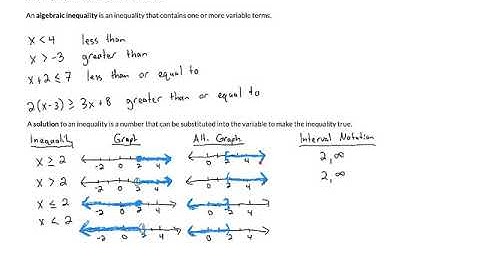 An algebraic inequality is an inequality that contains one or more variable terms.
x < 4 less than
x > -3 greater than
x + 2 ≤ 7 less than or equal to
2(x-3) ≥ 3x + 8 greater than or equal to
A solution to an inequality is a number that can be substituted into the variable to make the inequality true.
Inequality Graph Alt. Graph Interval Notation
x ≥ 2 -2 0 2 4 0 2 4 2, ∞
x > 2 -2 0 2 4 0 2 4 2, ∞
x ≤ 2 -2 0 2 4 0 2 4
x < 2 -2 0 2 4 0 2 4